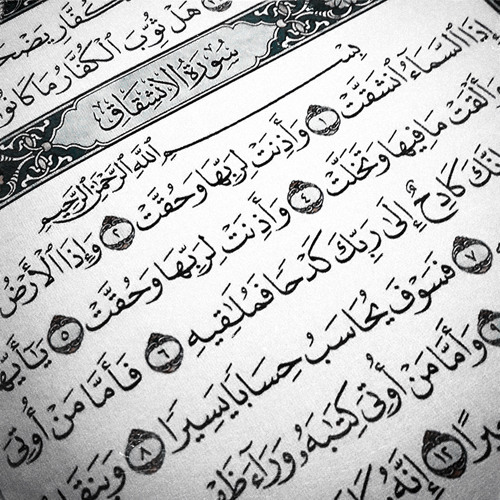 كُفَّارِ يَضْحَ
هَلْ ثُوِّبَ ٱلْكُفَّارُ مَا كَانُوا
سُورَةُ الانشِقَاقِ
بِسْمِ ٱللَّهِ ٱلرَّحْمَٰنِ ٱلرَّحِيمِ
إِذَا ٱلسَّمَآءُ ٱنشَقَّتْ ١ وَأَذِنَتْ لِرَبِّهَا وَحُقَّتْ ٢ وَإِذَا ٱلْأَرْضُ
وَأَلْقَتْ مَا فِيهَا وَتَخَلَّتْ ٤ وَأَذِنَتْ لِرَبِّهَا وَحُقَّتْ ٥ يَٰٓأَيُّهَا
إِنَّكَ كَادِحٌ إِلَىٰ رَبِّكَ كَدْحًا فَمُلَٰقِيهِ ٦ فَأَمَّا مَنْ أُوتِىَ
٧ فَسَوْفَ يُحَاسَبُ حِسَابًا يَسِيرًا ٨ وَيَنقَلِ
وَأَمَّا مَنْ أُوتِىَ كِتَٰبَهُۥ وَرَآءَ ظَهْ
يرًا ١٢ إِنَّهُۥ كَا